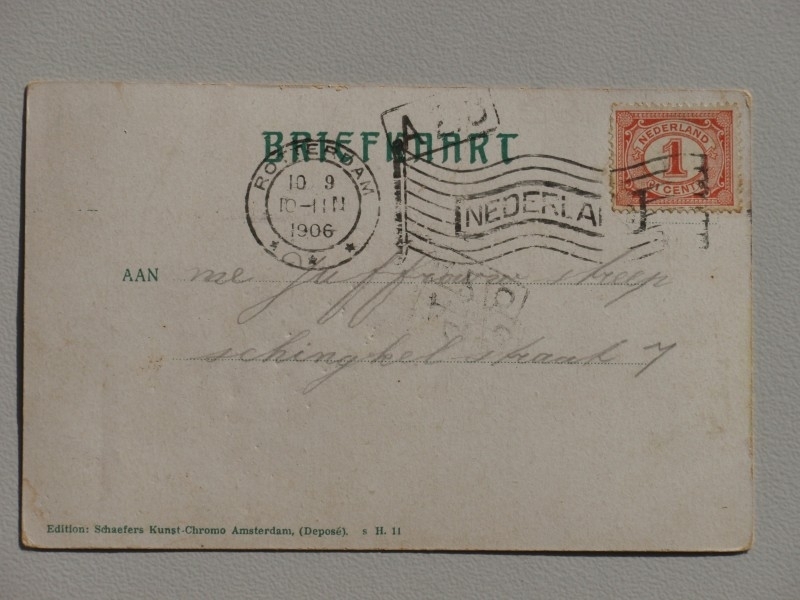 BRIEFKAART
ROTTERDAM
10 9
10-11 N
1906
NEDERLAND
NEDERLAND
1
CENT
AAN me Juffrouw streep
schingkel straat 7
Edition: Schaefers Kunst-Chromo Amsterdam, (Deposé). s H. 11